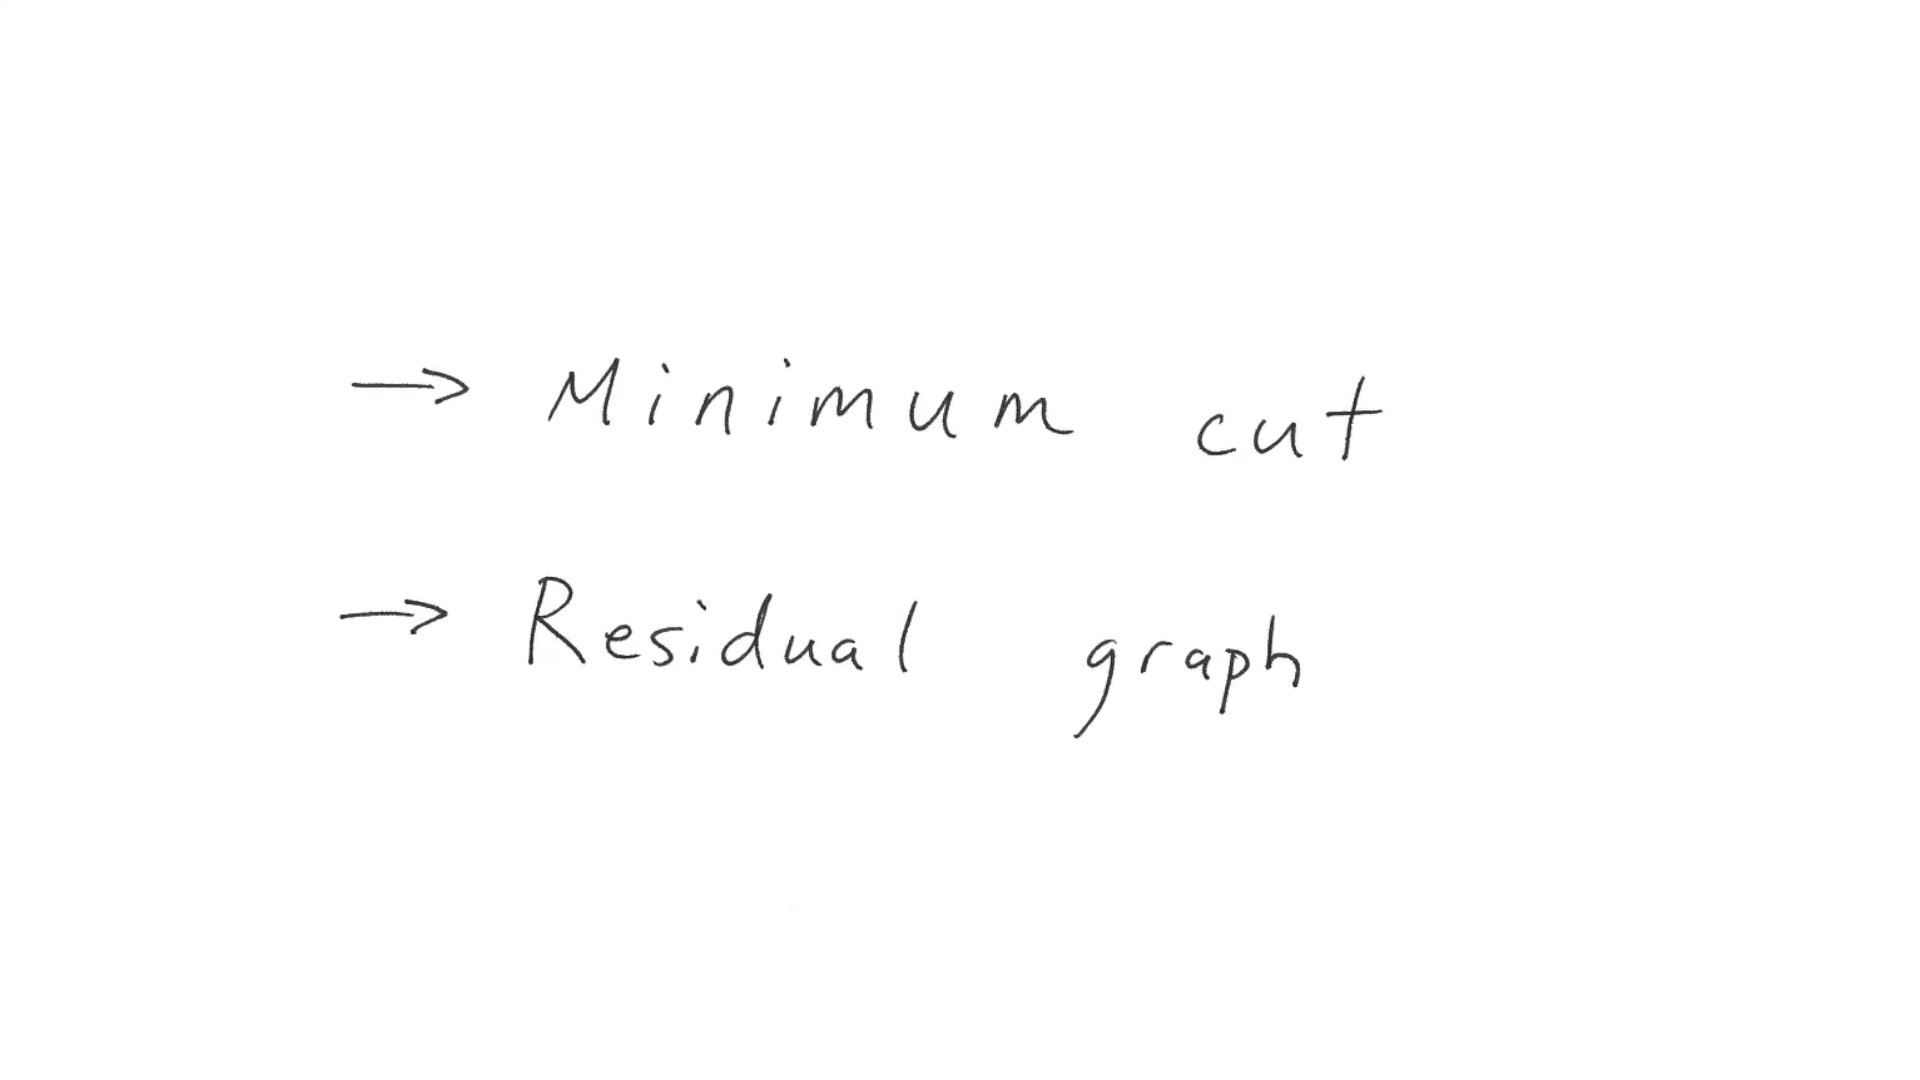 → Minimum cut
→ Residual graph